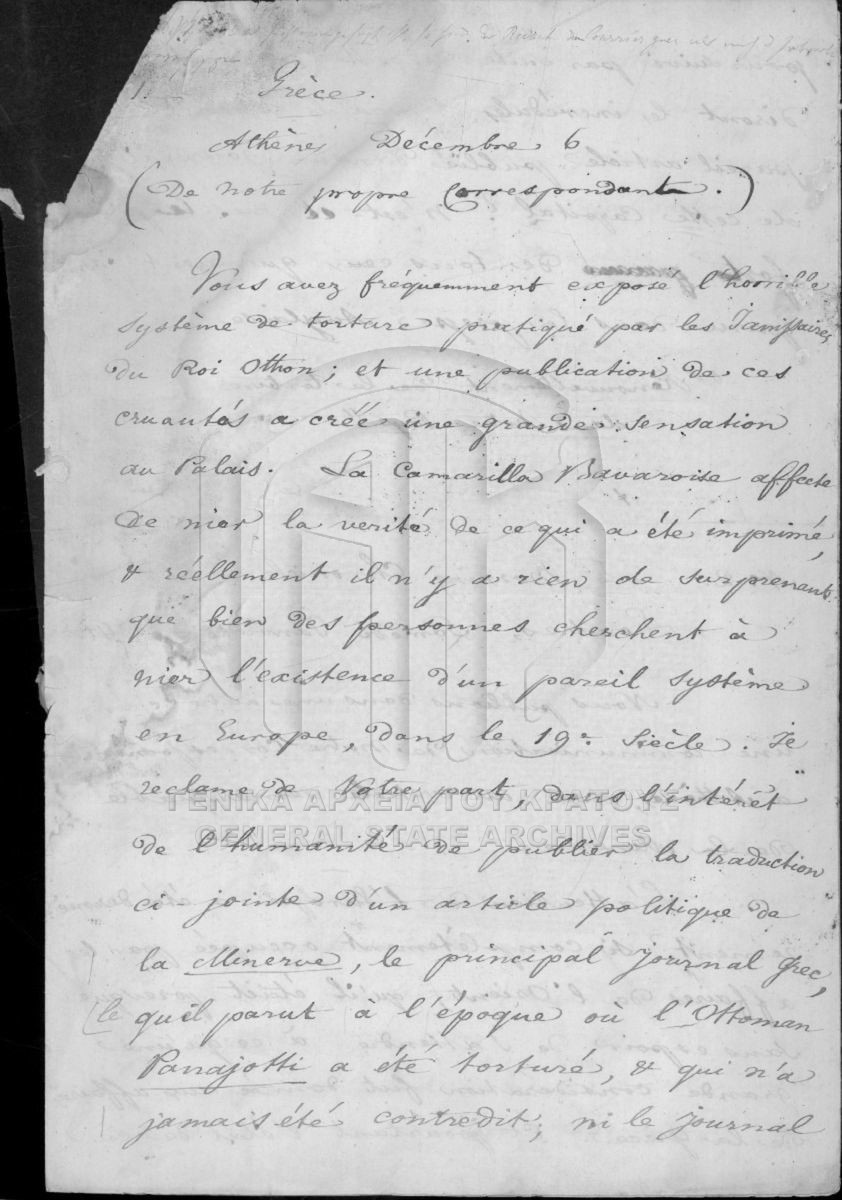 1.
Grèce.
Athènes Décembre 6
(De notre propre Correspondant.)
Vous avez fréquemment exposé l'horrible
système de torture pratiqué par les Janissaires
du Roi Othon; et une publication de ces
cruautés a créé une grande sensation
au Palais. La Camarilla Bavaroise affecte
de nier la verité de ce qui a été imprimé,
& réellement il n'y a rien de surprenant
que bien des personnes cherchent à
nier l'existence d'un pareil système
en Europe, dans le 19e Siècle. Je
reclame de Votre part, dans l'intérêt
ΓΕΝΙΚΑ ΑΡΧΕΙΑ ΤΟΥ ΚΡΑΤΟΥΣ
GENERAL STATE ARCHIVES
de l'humanité de publier la traduction
ci-jointe d'un article politique de
la Minerve, le principal Journal Grec,
(le qu'il parut à l'époque où l'Ottoman
Panajotti a été torturé, & qui n'a
jamais été contredit, ni le Journal